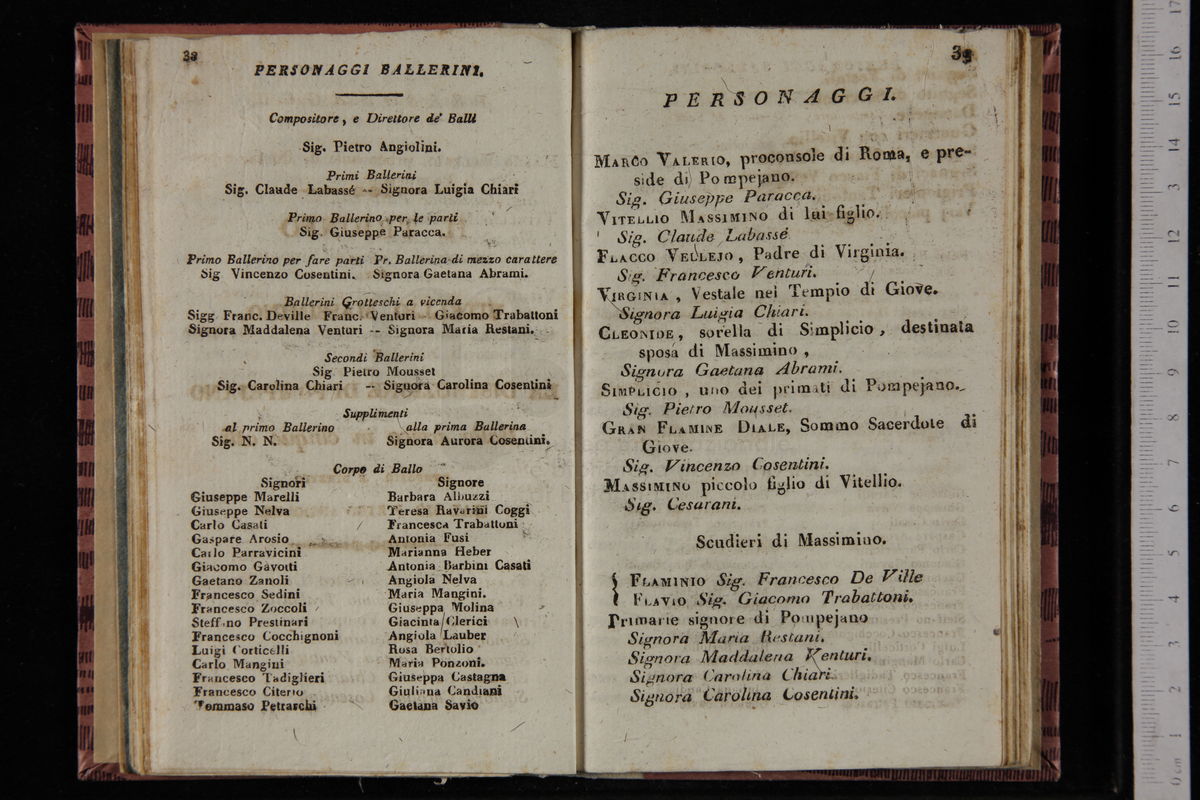 32
PERSONAGGI BALLERINI.
Compositore, e Direttore de' Balli
Sig. Pietro Angiolini.
Primi Ballerini
Sig. Claude Labassé -- Signora Luigia Chiari
Primo Ballerino per le parti
Sig. Giuseppe Paracca.
Primo Ballerino per fare parti Pr. Ballerina di mezzo carattere
Sig Vincenzo Cosentini. Signora Gaetana Abrami.
Ballerini Grotteschi a vicenda
Sigg Franc. Deville Franc. Venturi Giacomo Trabattoni
Signora Maddalena Venturi -- Signora Maria Restani.
Secondi Ballerini
Sig Pietro Mousset
Sig. Carolina Chiari -- Signora Carolina Cosentini
Supplimenti
al primo Ballerino alla prima Ballerina
Sig. N. N. Signora Aurora Cosentini.
Corpo di Ballo
Signori Signore
Giuseppe Marelli Barbara Albuzzi
Giuseppe Nelva Teresa Ravarini Coggi
Carlo Casati Francesca Trabattoni
Gaspare Arosio Antonia Fusi
Carlo Parravicini Marianna Heber
Giacomo Gavotti Antonia Barbini Casati
Gaetano Zanoli Angiola Nelva
Francesco Sedini Maria Mangini.
Francesco Zoccoli Giuseppa Molina
Steffano Prestinari Giacinta Clerici
Francesco Cocchignoni Angiola Lauber
Luigi Corticelli Rosa Bertolio
Carlo Mangini Maria Ponzoni.
Francesco Tadiglieri Giuseppa Castagna
Francesco Citerio Giuliana Candiani
Tommaso Petrarchi Gaetana Savio
33
PERSONAGGI.
MARCO VALERIO, proconsole di Roma, e pre-
side di Pompejano.
Sig. Giuseppe Paracca.
VITELLIO MASSIMINO di lui figlio.
Sig. Claude Labassé
FLACCO VELLEJO, Padre di Virginia.
Sig. Francesco Venturi.
VIRGINIA, Vestale nel Tempio di Giove.
Signora Luigia Chiari.
CLEONIDE, sorella di Simplicio, destinata
sposa di Massimino,
Signora Gaetana Abrami.
SIMPLICIO, uno dei primati di Pompejano.
Sig. Pietro Mousset.
GRAN FLAMINE DIALE, Sommo Sacerdote di
Giove.
Sig. Vincenzo Cosentini.
MASSIMINO piccolo figlio di Vitellio.
Sig. Cesarani.
Scudieri di Massimino.
{ FLAMINIO Sig. Francesco De Ville
{ FLAVIO Sig. Giacomo Trabattoni.
Primarie signore di Pompejano
Signora Maria Restani.
Signora Maddalena Venturi.
Signora Carolina Chiari.
Signora Carolina Cosentini.
0 cm 1 2 3 4 5 6 7 8 9 10 11 12 13 14 15 16 17